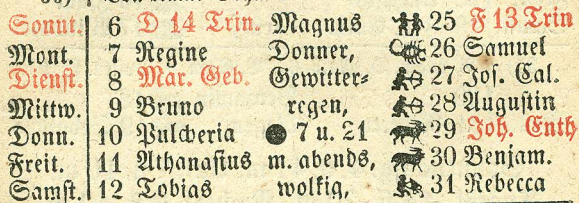 Sonnt. 6 D 14 Trin. Magnus 25 F 13 Trin
Mont. 7 Regine Donner, 26 Samuel
Dienst. 8 Mar. Geb. Gewitter- 27 Jos. Cal.
Mittw. 9 Bruno regen, 28 Augustin
Donn. 10 Pulcheria ● 7 u. 21 29 Joh. Enth
Freit. 11 Athanasius m. abends, 30 Benjam.
Samst. 12 Tobias wolkig, 31 Rebecca